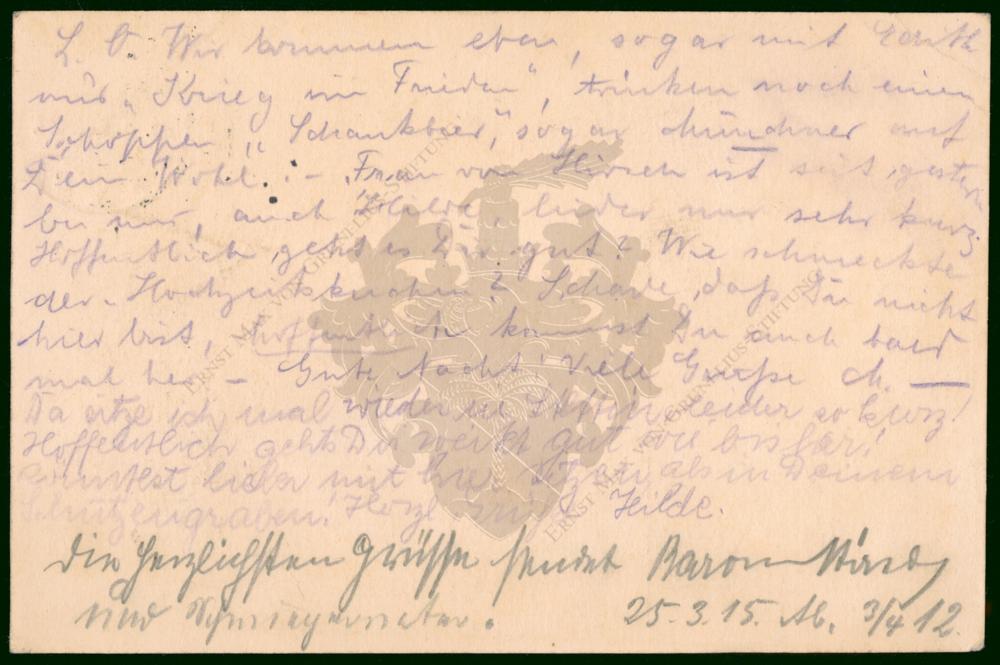 L. O. Wir kommen eben, sogar mit Edith
aus „Krieg im Frieden“, trinken noch einen
Schoppen „Schankbier“, sogar Münchner auf
Dein Wohl. – Frau von Hirsch ist seit gestern
bei mir, auch Hilde, leider nur sehr kurz.
Hoffentlich geht es Dir gut? Wie schmeckte
der Hochzeitskuchen? Schade, daß Du nicht
hier bist, hoffentlich kommst Du auch bald
mal her. – Gute Nacht! Viele Grüße M. —
Da sitze ich mal wieder in leider so kurz!
Hoffentlich gehts Dir weiter gut wie bisher!
lieber mit hier sitzen, als in Deinem
Schützengraben! Herzl. Hilde.
Die herzlichsten Grüsse sendet Baron
und Schwiegervater. 25.3.15. Ab. 3/4 12.
ERNST MAX VON GRUNELIUS-STIFTUNG
ERNST MAX VON GRUNELIUS-STIFTUNG